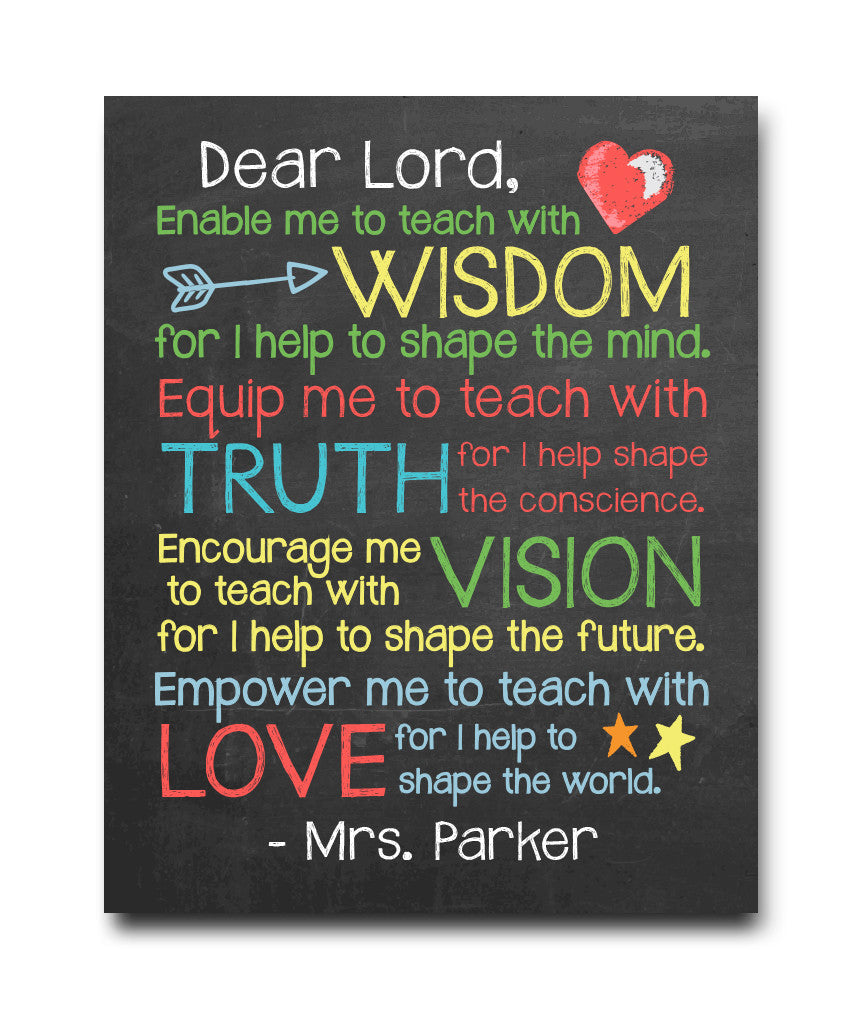 Dear Lord,
Enable me to teach with
WISDOM
for I help to shape the mind.
Equip me to teach with
TRUTH
for I help shape
the conscience.
Encourage me
to teach with
VISION
for I help to shape the future.
Empower me to teach with
LOVE
for I help to
shape the world.
- Mrs. Parker